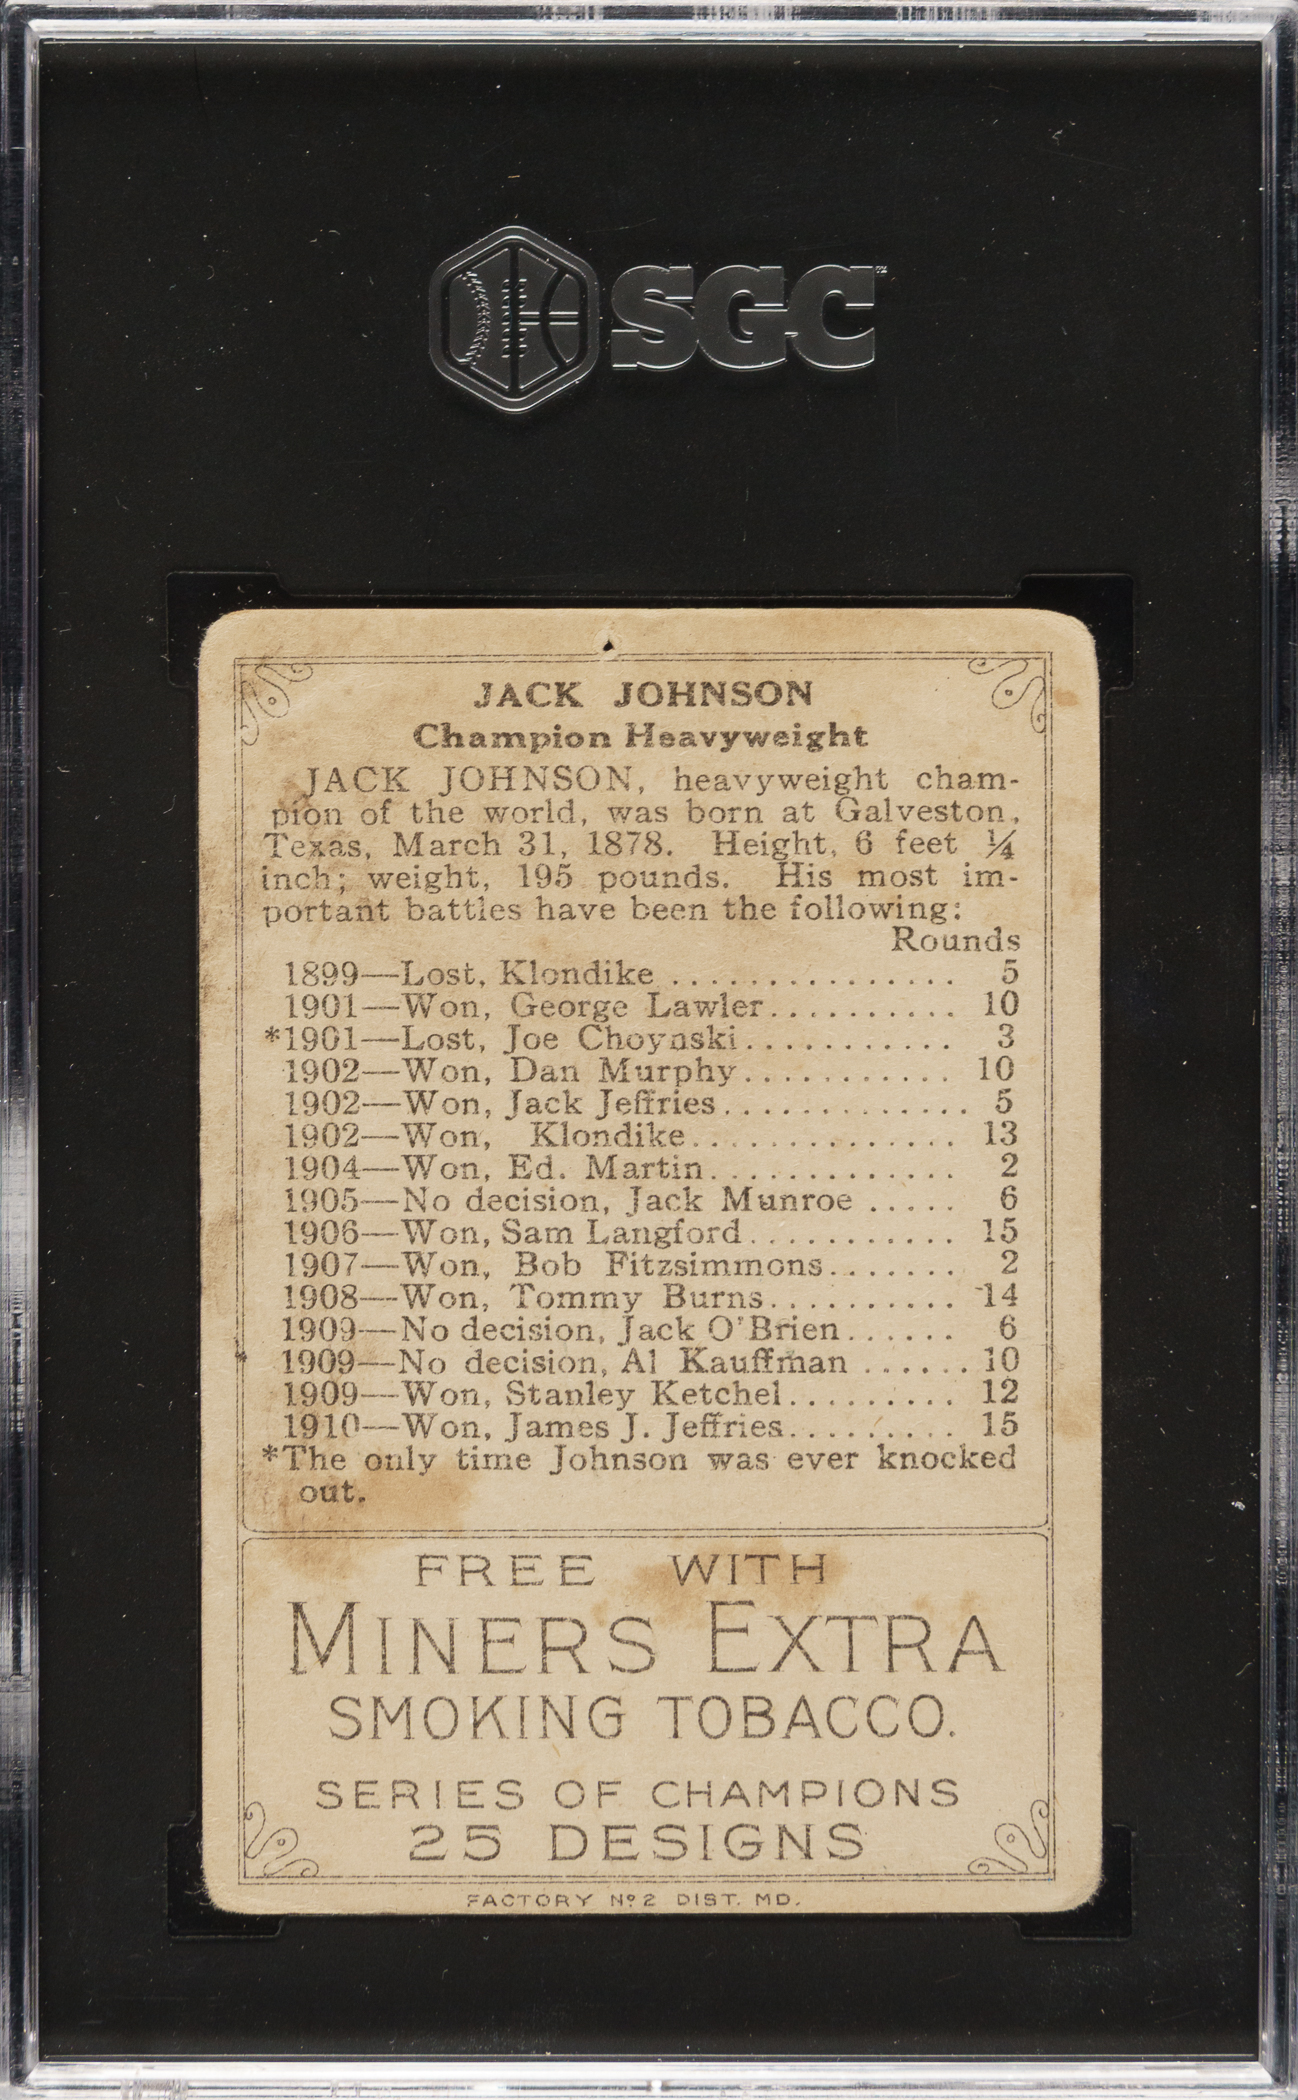 SGC
JACK JOHNSON
Champion Heavyweight
JACK JOHNSON, heavyweight cham-
pion of the world, was born at Galveston,
Texas, March 31, 1878. Height, 6 feet ¼
inch; weight, 195 pounds. His most im-
portant battles have been the following:
Rounds
1899—Lost, Klondike ............... 5
1901—Won, George Lawler.......... 10
*1901—Lost, Joe Choynski........... 3
1902—Won, Dan Murphy........... 10
1902—Won, Jack Jeffries............. 5
1902—Won, Klondike.............. 13
1904—Won, Ed. Martin............. 2
1905—No decision, Jack Munroe ..... 6
1906—Won, Sam Langford........... 15
1907—Won, Bob Fitzsimmons....... 2
1908—Won, Tommy Burns.......... 14
1909—No decision, Jack O'Brien...... 6
1909—No decision, Al Kauffman ...... 10
1909—Won, Stanley Ketchel......... 12
1910—Won, James J. Jeffries......... 15
*The only time Johnson was ever knocked
out.
FREE WITH
MINERS EXTRA
SMOKING TOBACCO.
SERIES OF CHAMPIONS
25 DESIGNS
FACTORY Nº 2 DIST. MD.